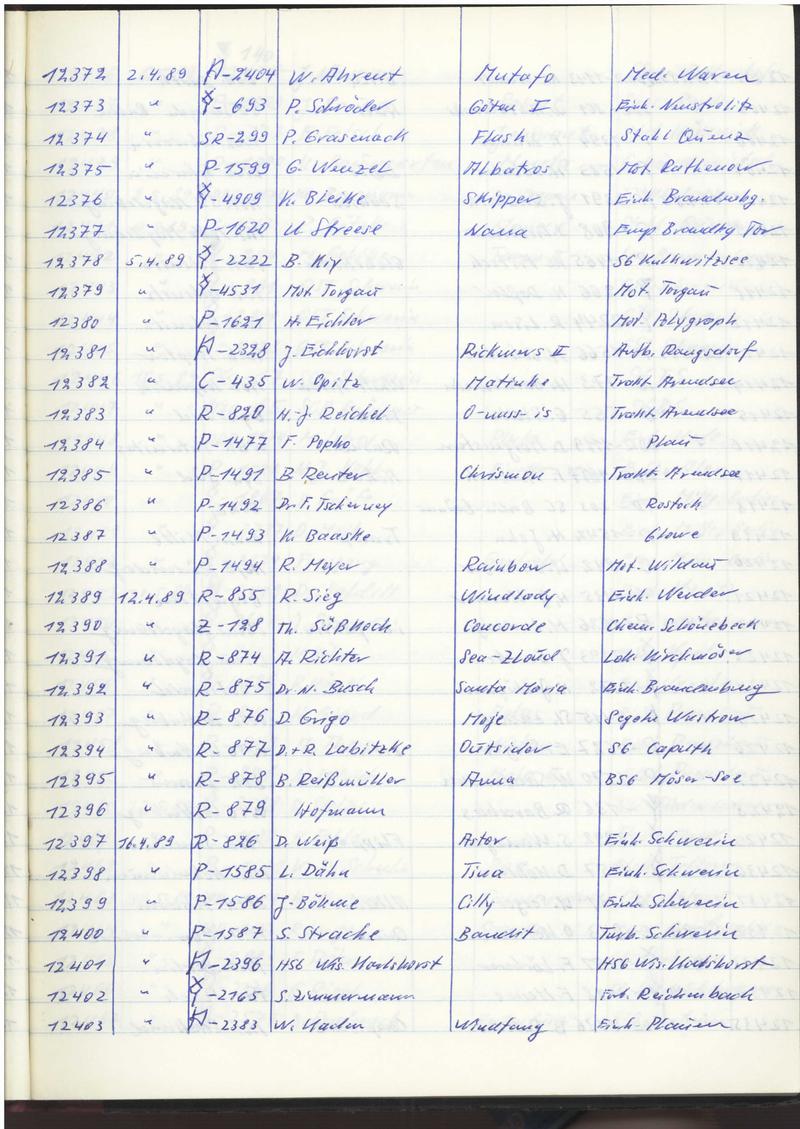 12372 2.4.89 H-2404 W. Ahrent Mutafo Med. Waren
12373 " Y-693 P. Schröder Götan I Einh. Neustrelitz
12374 " SR-299 P. Grasenack Flash Stahl Quenz
12375 " P-1599 G. Wenzel Albatros Mot. Rathenow
12376 " Y-4909 K. Bleike Skipper Einh. Brandenbg.
12377 " P-1620 U. Streese Nana Emp. Brandbg Tor
12378 5.4.89 Y-2222 B. Nix SG Kulkwitzsee
12379 " Y-4531 Mot. Torgau Mot. Torgau
12380 " P-1621 H. Eichler Mot. Polygraph
12381 " H-2328 J. Eichhorst Rickmers II Aufb. Rangsdorf
12382 " C-435 W. Opitz Matinke Trakt. Arendsee
12383 " R-820 H.-J. Reichel O-nuss-is Trakt. Arendsee
12384 " P-1477 F. Popho Plau
12385 " P-1491 B. Reuter Chrismon Trakt. Arendsee
12386 " P-1492 Dr. F. Tscherney Rostock
12387 " P-1493 K. Baaske Glowe
12388 " P-1494 R. Meyer Rainbow Mot. Wildau
12389 12.4.89 R-855 R. Sieg Windlady Einh. Werder
12390 " Z-128 Th. Süßkoch Concorde Chem. Schönebeck
12391 " R-874 A. Richter Sea-Zloud Lok. Kirchmöser
12392 " R-875 Dr. N. Busch Santa Maria Einh. Brandenburg
12393 " R-876 D. Grigo Moje Segeln Wustrow
12394 " R-877 D.+R. Labitzke Outsider SG Caputh
12395 " R-878 B. Reißmüller Anna BSG Möser-See
12396 " R-879 Hofmann
12397 16.4.89 R-826 D. Weiß Astor Einh. Schwerin
12398 " P-1585 L. Dähn Tina Einh. Schwerin
12399 " P-1586 J. Böhme Cilly Einh. Schwerin
12400 " P-1587 S. Stracke Bandit Turb. Schwerin
12401 " H-2396 HSG Wis. Karlshorst HSG Wis. Karlshorst
12402 " Y-2165 S. Zimmermann Fort. Reichenbach
12403 " H-2383 W. Hadan Windfang Einh. Plauen